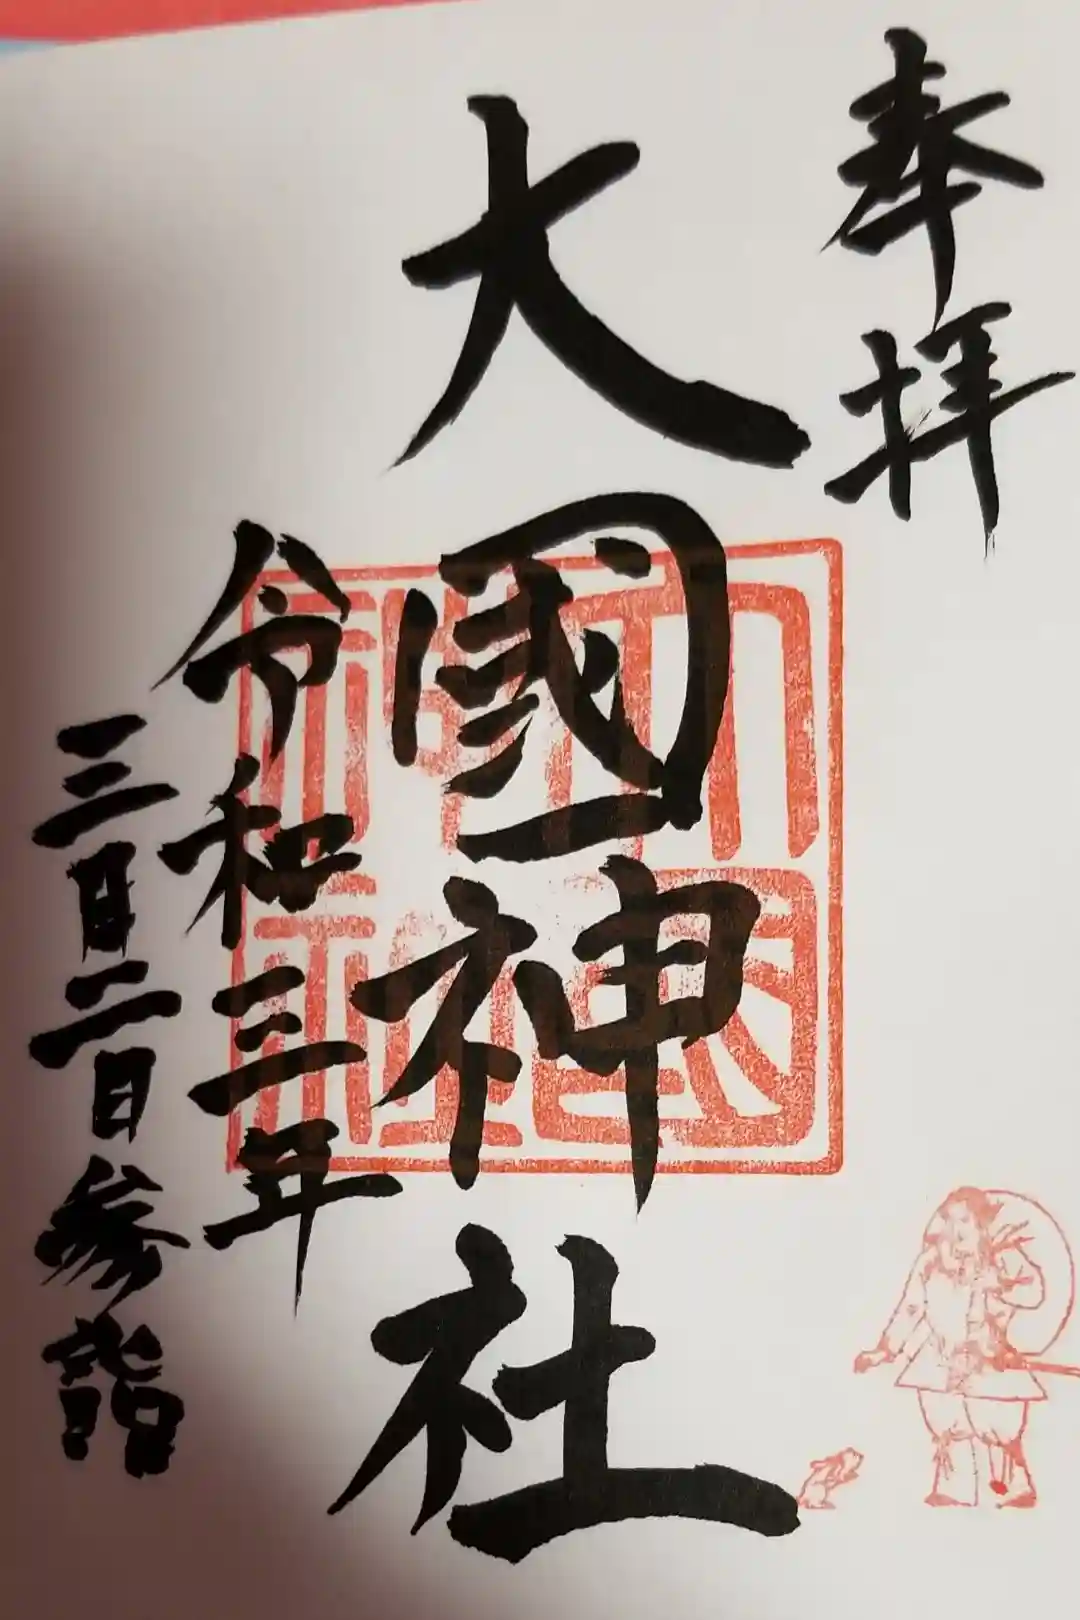 奉拝
大國神社
令和三年
三月二日参詣
大國
神社